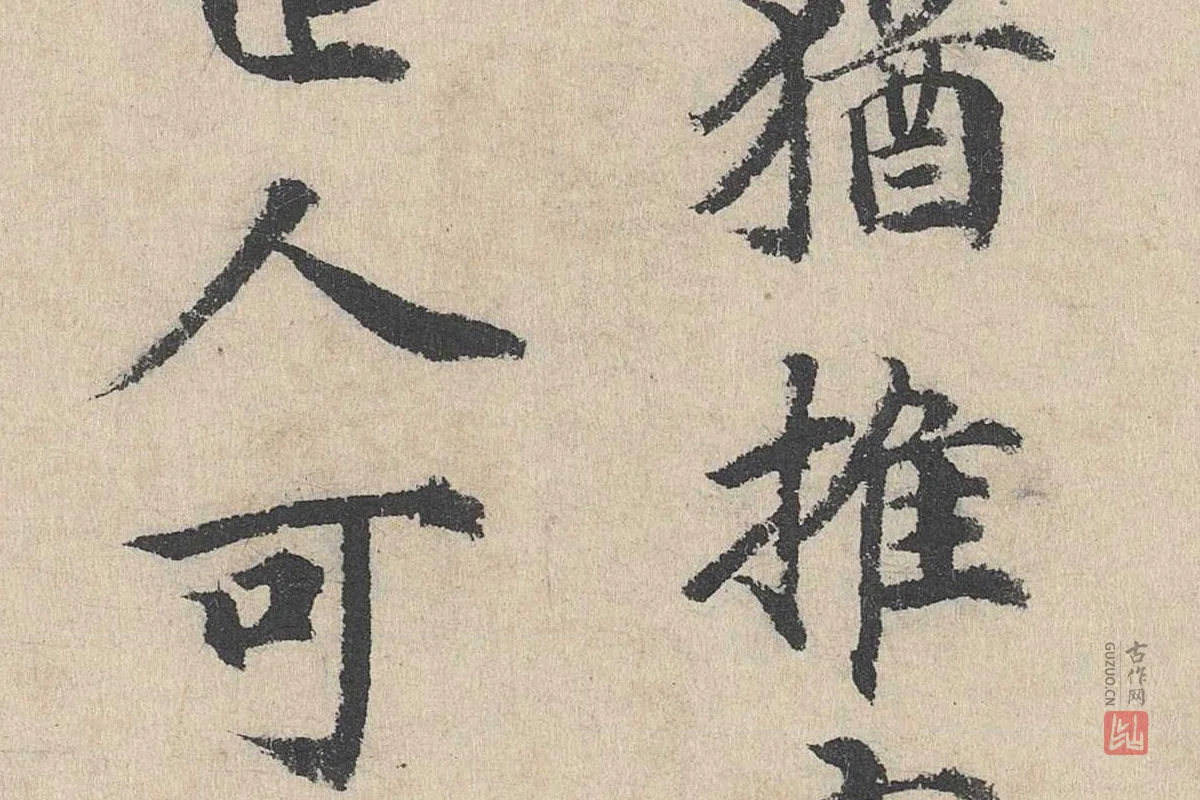 猶推
人可
古作网
GUZUO.CN